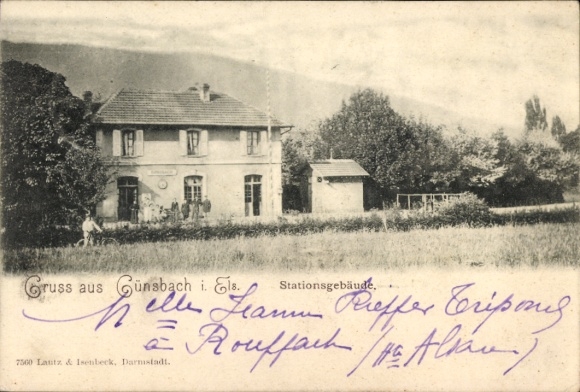 Gruss aus Günsbach i. Els. Stationsgebäude.
Mlle Jeanne Kieffer
à Rouffach (Hte Alsace
7560 Lautz & Isenbeck, Darmstadt.